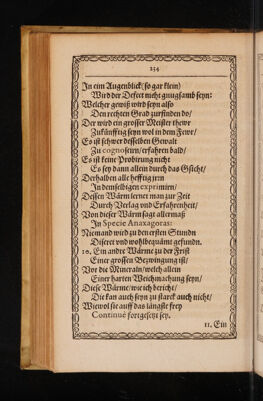 234
In ein Augenblick (so gar klein)
Wird der Defect nicht gnugsamb seyn:
Welcher gewiß wird seyn also
Den rechten Grad zurfinden do/
Der wird ein grosser Meister thewr
Zukünfftig seyn wol in dem Fewr/
Es ist schwer desselben Gewalt
Zu cognoscirn/erfahren bald/
Es ist keine Probirung nicht
Es sey dann allein durch das Gsicht/
Derhalben alle hefftig irrn
In demselbigen exprimirn/
Dessen Wärm lernet man zur Zeit
Durch Verlag und Erfahrenheit/
Von dieser Wärm sagt allermaß
In Specie Anaxagoras:
Niemand wird zu den ersten Stundn
Discret und wohlbequämt gefundn.
10. Ein andre Wärme zu der Frist
Einer grossen Bezwingung ist/
Vor die Mineraln/welch allein
Einer harten Weichmachung seyn/
Diese Wärme/wie ich bericht/
Die kan auch seyn zu starck auch nicht/
Wiewol sie auff das längste frey
Continué fortgesetzt sey.
11. Ein